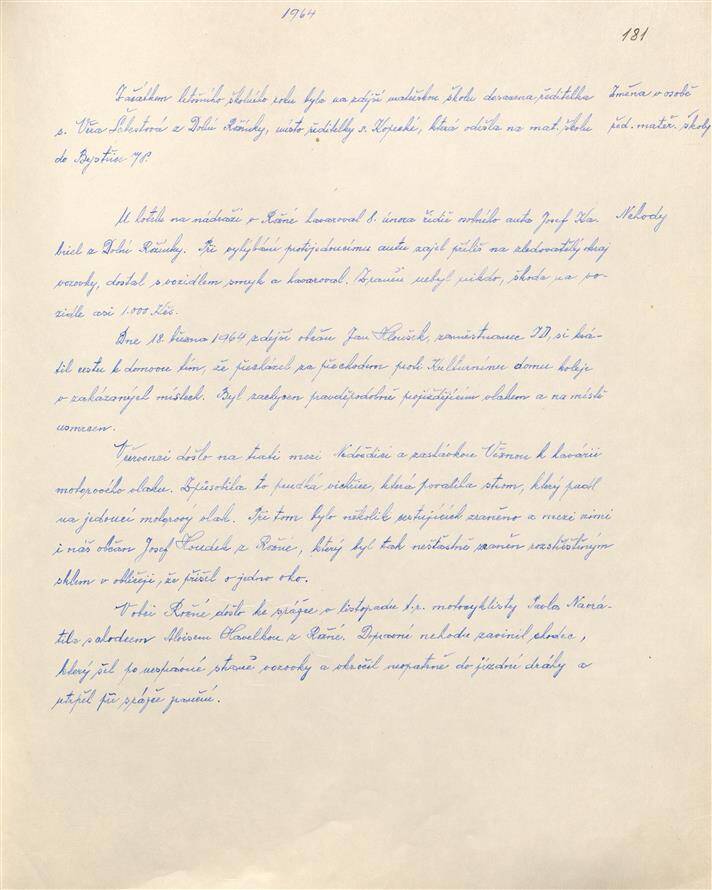 1964
181
Začátkem letošního školního roku byla na zdejší mateřskou školu dosazena ředitelka
Změna v osobě
s. Věra z Dolní Rožínky, místo ředitelky s. Kopecké, která odešla na mat. školu
řed. mateř. školy
do Bystřice n/P.
U hotelu na nádraží v Rožné havaroval 8. února řidič osobního auta Josef Ka-
Nehody
biel z Dolní Rožínky. Při vyhýbání protijedoucímu autu zajel příliš na zledovatělý okraj
vozovky, dostal s vozidlem smyk a havaroval. Zraněn nebyl nikdo, škoda na vo-
zidle asi 1.000 Kčs.
Dne 18. března 1964 zdejší občan Jan zaměstnanec JD, si krá-
til cestu k domovu tím, že přecházel za přechodem proti Kulturnímu domu koleje
v zakázaných místech. Byl zachycen pravděpodobně projíždějícím vlakem a na místě
usmrcen.
V červenci došlo na trati mezi Nedvědicí a zastávkou Věžnou k havárii
motorového vlaku. Způsobila to prudká vichřice, která povalila strom, který padl
na jedoucí motorový vlak. Při tom bylo několik cestujících zraněno a mezi nimi
i náš občan Josef Houdek z Rožné, který byl tak nešťastně zraněn roztříštěným
sklem v obličeji, že přišel o jedno oko.
V obci Rožné došlo ke srážce v listopadu t.r. motocyklisty Pavla Navrá-
tila s chodcem Aloisem Havelkou z Rožné. Dopravní nehodu zavinil chodec,
který šel po nesprávné straně vozovky a vkročil neopatrně do jízdní dráhy a
utrpěl při srážce zranění.